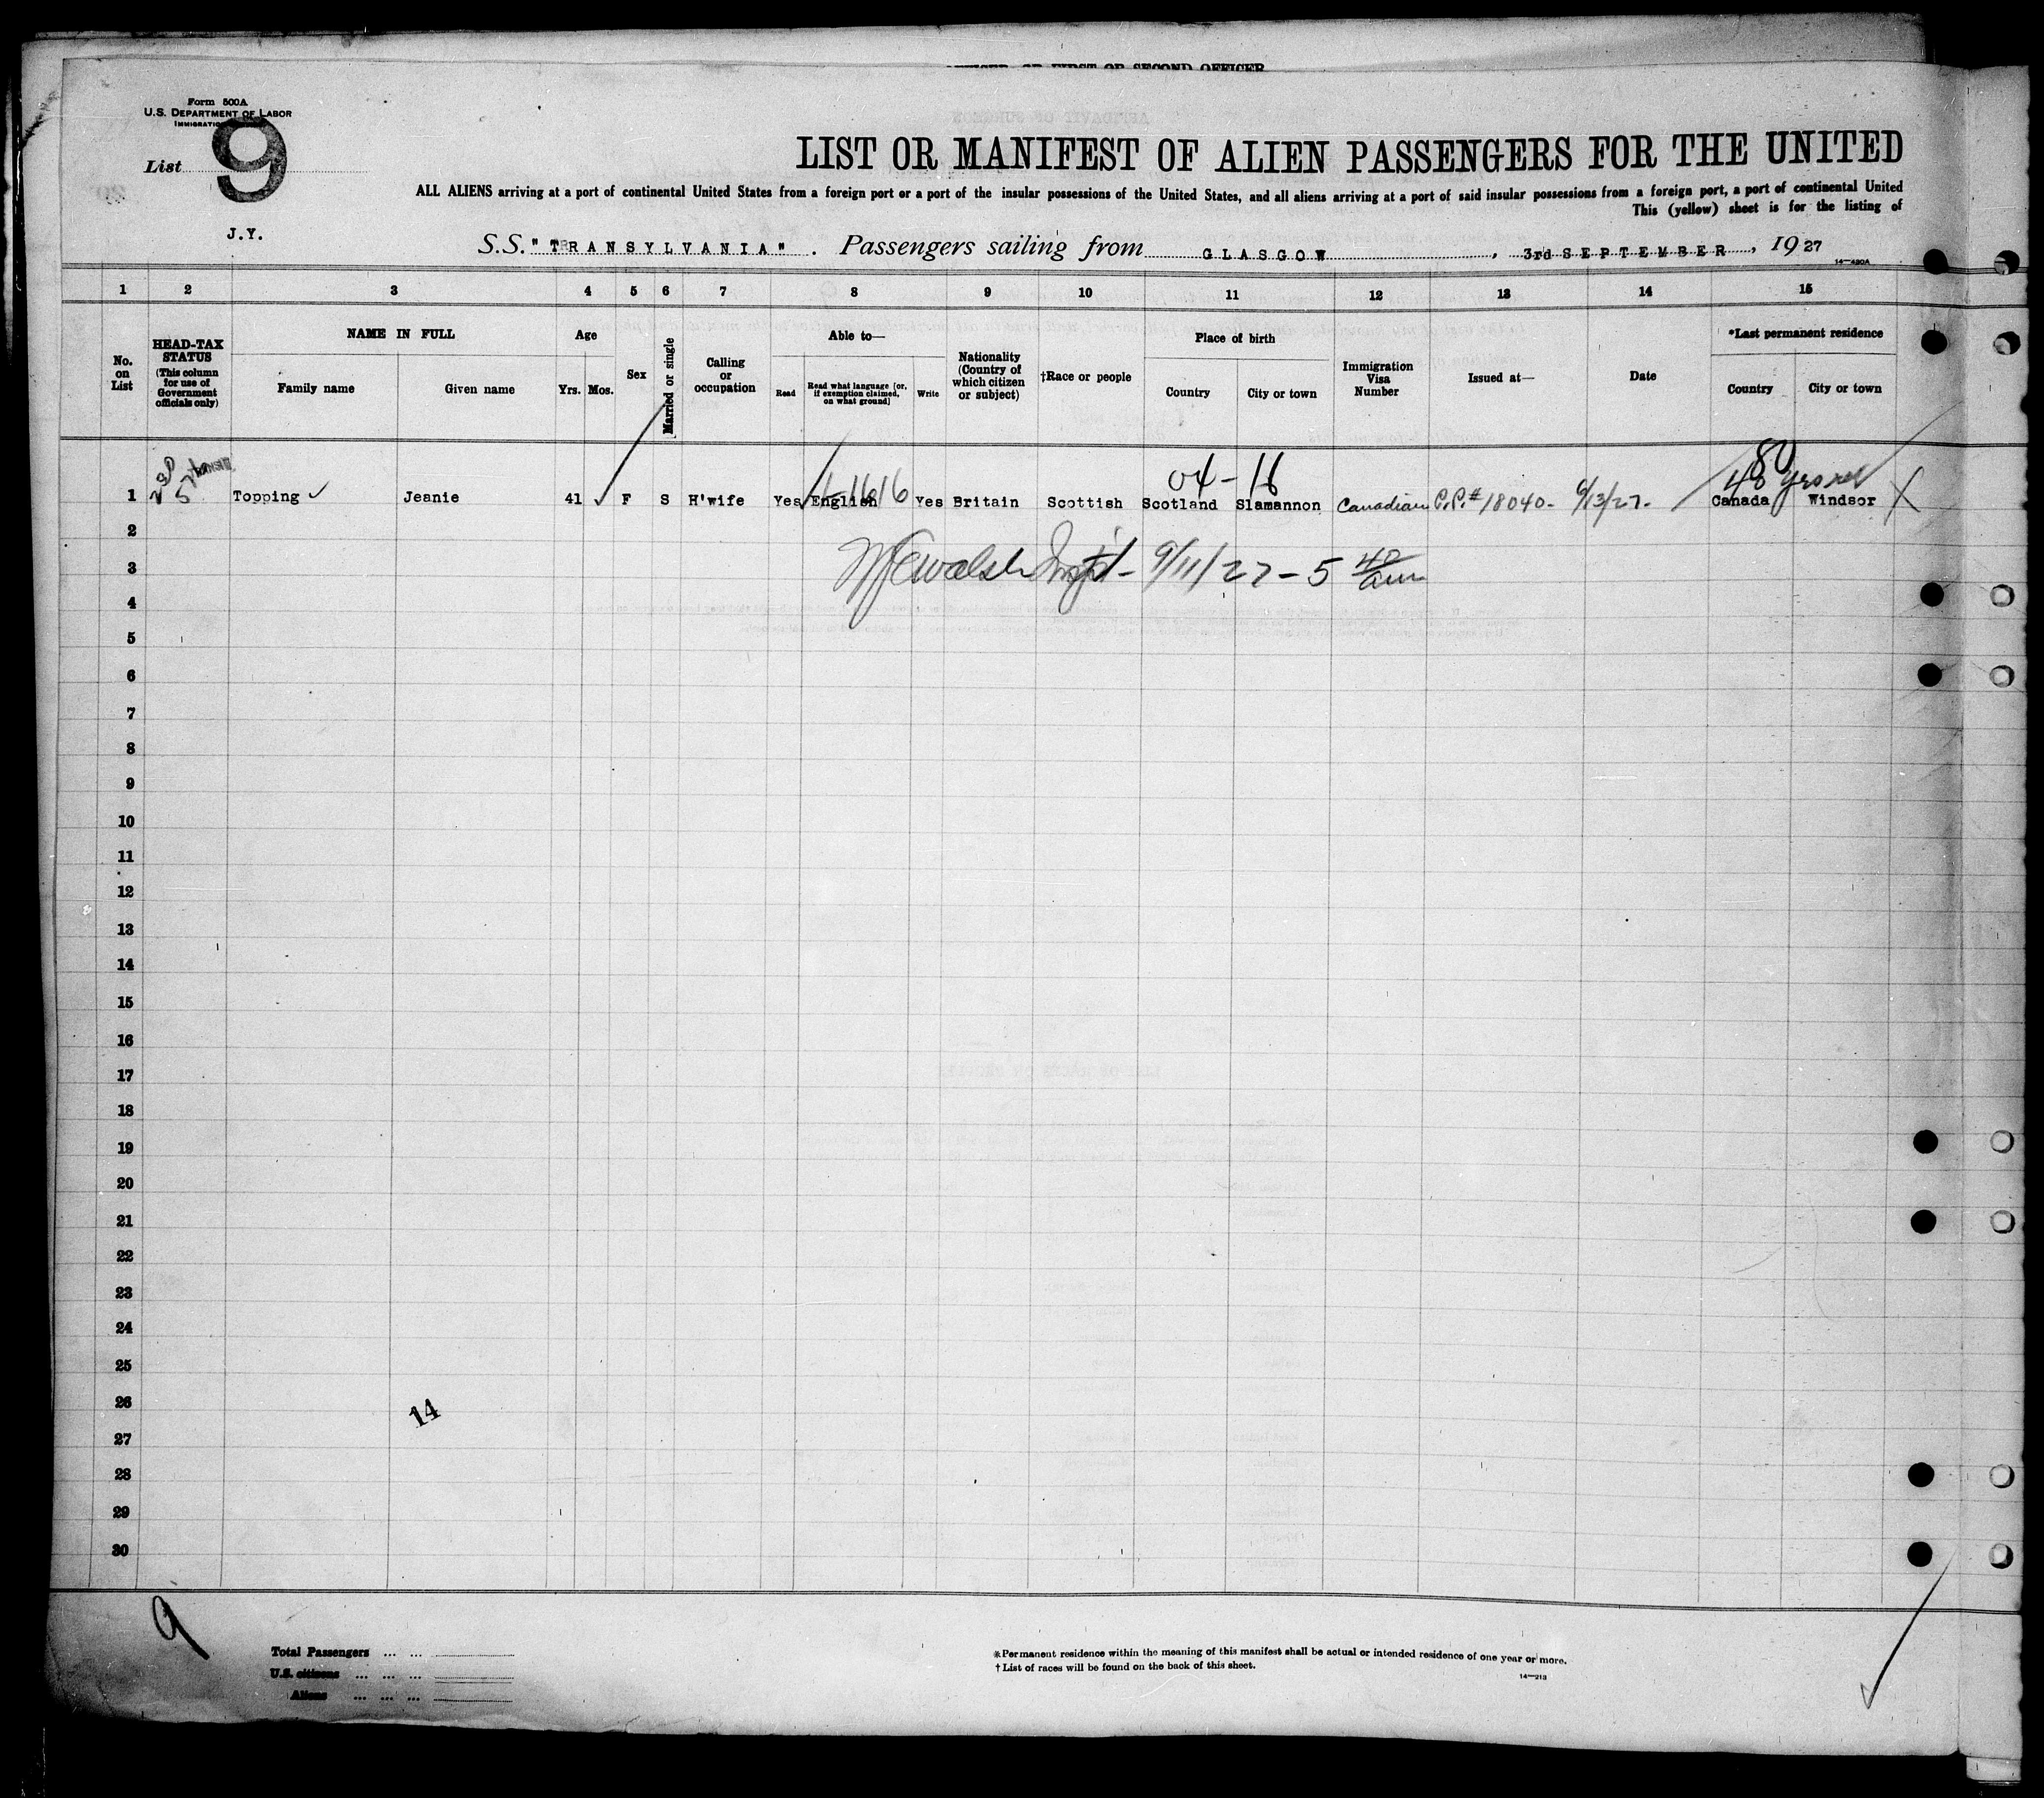 OFFICER, OR FIRST OR SECOND OFFICER
Form 500A
U.S. DEPARTMENT OF LABOR
IMMIGRATION
List 9
J.Y.
LIST OR MANIFEST OF ALIEN PASSENGERS FOR THE UNITED
ALL ALIENS arriving at a port of continental United States from a foreign port or a port of the insular possessions of the United States, and all aliens arriving at a port of said insular possessions from a foreign port, a port of continental United
This (yellow) sheet is for the listing of
S.S. "TRANSYLVANIA". Passengers sailing from GLASGOW, 3rd SEPTEMBER, 1927
14—480A
1 2 3 4 5 6 7 8 9 10 11 12 13 14 15
No. on List
HEAD-TAX STATUS (This column for use of Government officials only)
NAME IN FULL
Family name
Given name
Age
Yrs. Mos.
Sex
Married or single
Calling or occupation
Able to—
Read
Read what language [or, if exemption claimed, on what ground]
Write
Nationality (Country of which citizen or subject)
†Race or people
Place of birth
Country
City or town
Immigration Visa Number
Issued at—
Date
*Last permanent residence
Country
City or town
04-16
1 Topping Jeanie 41 F S H'wife Yes English Yes Britain Scottish Scotland Slamannon Canadian P.P.# 18040- 6/13/27- Canada Windsor X
2
3 Walsh Insp- 9/11/27-5 40 am
4
5
6
7
8
9
10
11
12
13
14
15
16
17
18
19
20
21
22
23
24
25
26
14
27
28
29
30
9
Total Passengers
U.S. citizens
Aliens
*Permanent residence within the meaning of this manifest shall be actual or intended residence of one year or more.
†List of races will be found on the back of this sheet.
14—213